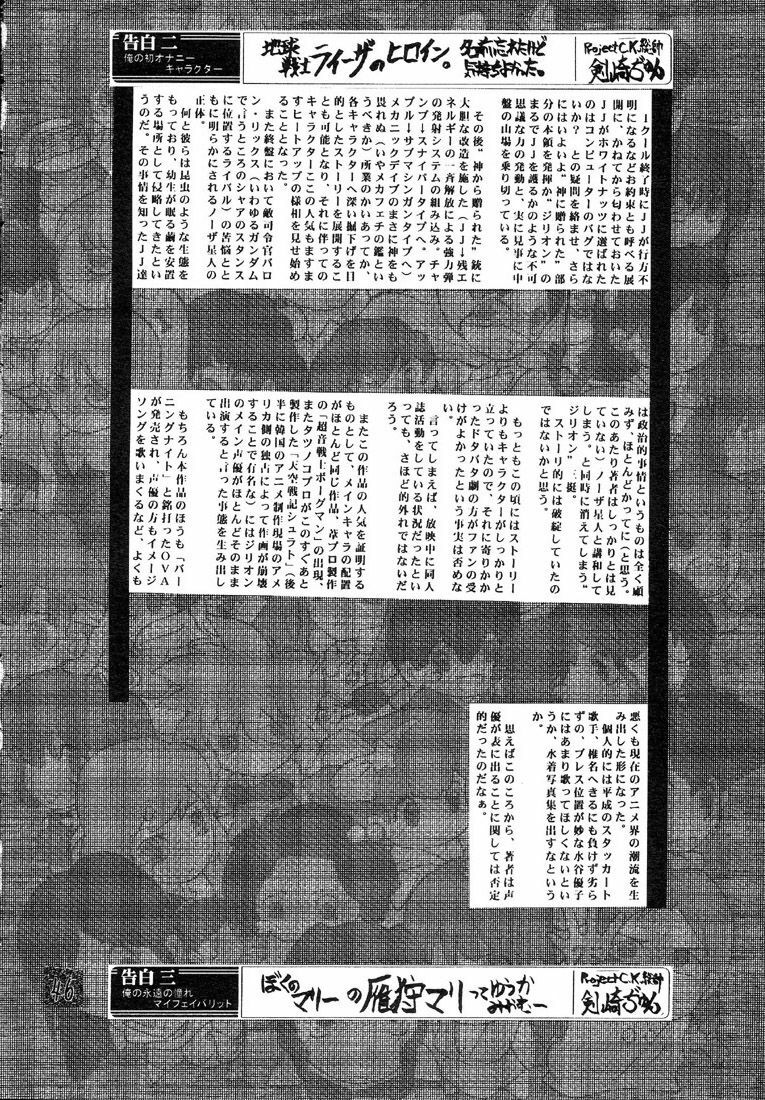 告白 二
俺の初オナニー
キャラクター
地球
戦士 ライーザのヒロイン。 名前忘れたけど
気持ちよかった。
Project C.K. 総帥
剣崎
１クール終了時にＪＪが行方不
明になるなどお約束とも呼べる展
開に、かねてから匂わせておいた
ＪＪがホワイトナッツに選ばれた
のはコンピューターのバグではな
いか？　との疑問を絡ませ、さら
にはいよいよ“神に贈られた”部
分の本領を発揮か“ジリオン”の
まるでＪＪを護るかのような不可
思議な力の発動と、実に見事に中
盤の山場を乗り切っている。
その後、神から贈られた〝銃に
大胆な改造を施した（ＪＪ→残エ
ネルギーの一斉解放による強力弾
の発射システムの組み込み。チャ
ンプ→スナイパータイプへ。アッ
プル→サブマシンガンタイプへ）
メカニックデイブのまさに神をも
畏れぬ（いやメカフェチの鑑とい
うべきか）所業のかいあってか、
各キャラクターへ深い掘下げを目
的としたストーリーを展開するこ
とも可能となり、それに伴っての
キャラクターごとの人気もますま
すヒートアップの様相を見せ始め
ることとなった。
また終盤において敵司令官バロ
ン・リックス（いわゆるガンダム
で言うところのシャアのスタンス
に位置するライバル）の苦悩とと
もに明らかにされるノーザ星人の
正体。
何と彼らは昆虫のような生態を
もっており、幼生が眠る繭を安置
する場所として侵略してきたとい
うのだ。その事情を知ったＪＪ達
は政治的事情というものは全く顧
みず、ほとんどかってに（と思う。
このあたり著者はしっかりとは見
ていない）ノーザ星人と講和して
しまう。と同時に消えてしまう“
ジリオン”三挺。
ストーリ的には破綻していたの
ではないかと思う。
もっともこの頃にはストーリー
よりもキャラクターがしっかりと
立っていたので、それに寄りかか
ったドタバタ劇の方がファンの受
けがよかったという事実は否めな
い。
言ってしまえば、放映中に同人
誌活動をしている状況だったとい
っても、さほど的外れではないだ
ろう。
またこの作品の人気を証明する
ものとして、メインキャラの配置
がほとんど同じ作品、葦プロ製作
の「超音戦士ボーグマン」の出現、
またタツノコプロがこのすぐあと
製作した「天空戦記シュラト」（後
半に韓国のアニメ制作現場のアメ
リカ側の独占によって作画が崩壊
することで有名な）にはジリオン
のメイン声優がほとんどそのまま
出演すると言った事態を生み出し
ている。
もちろん本作品のほうも「バー
ニングナイト」と銘打ったＯＶＡ
が発売され、声優の方もイメージ
ソングを歌いまくるなど、よくも
悪くも現在のアニメ界の潮流を生
み出した形になった。
個人的には平成のスタッカート
歌手、椎名へきるにも負けず劣ら
ずの、ブレス位置が妙な水谷優子
にはあまり歌ってほしくないとい
うか、水着写真集を出すなという
か。
思えばこのころから、著者は声
優が表に出ることに関しては否定
的だったのだなぁ。
46
告白 三
俺の永遠の憧れ
マイフェイバリット
ぼくの
マリー の雁狩マリ ってゆうか
みがむー
Project C.K. 総帥
剣崎